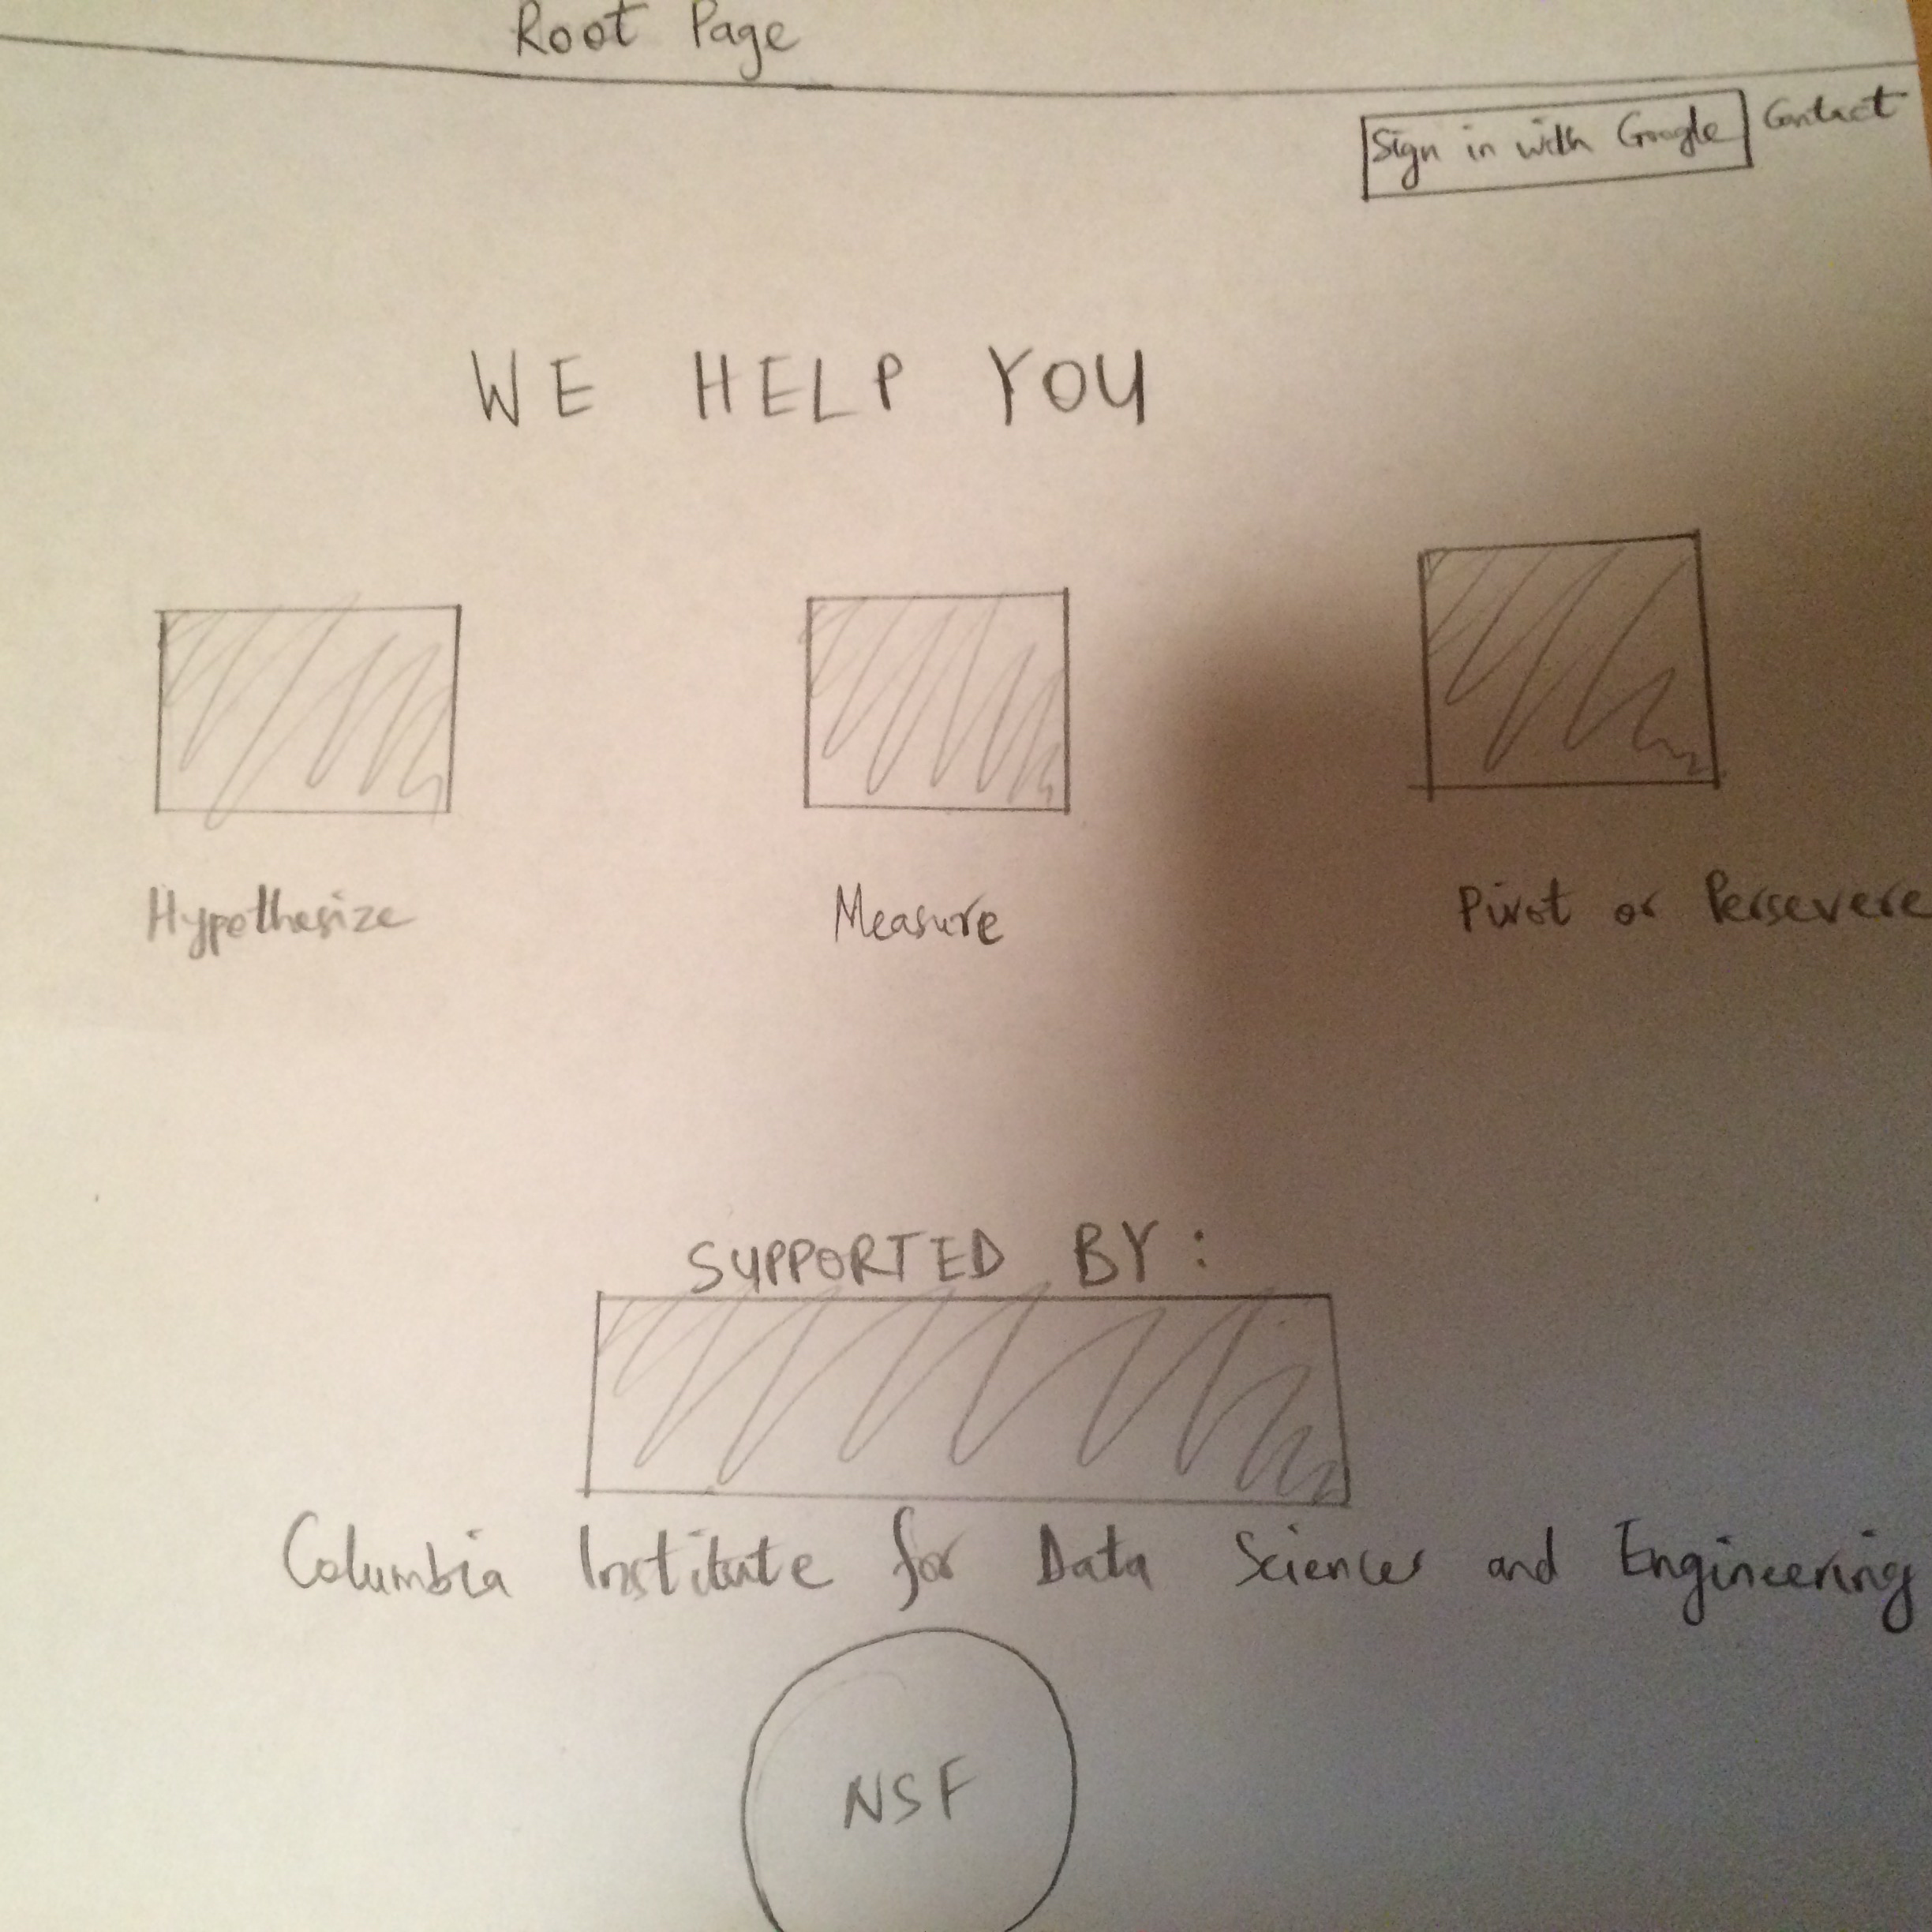 Root Page
Sign in with Google Contact
WE HELP YOU
Hypothesize Measure Pivot or Persevere
SUPPORTED BY:
Columbia Institute for Data Sciences and Engineering
NSF